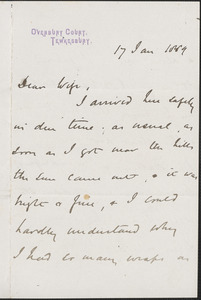 OVERBURY COURT,
TEWKESBURY.
17 Jan 1889
Dear Wife,
I arrived here safely
in due time: as usual, as
soon as I got near the hills
the sun came out, & it was
bright & fine, & I could
hardly understand why
I had so many wraps as